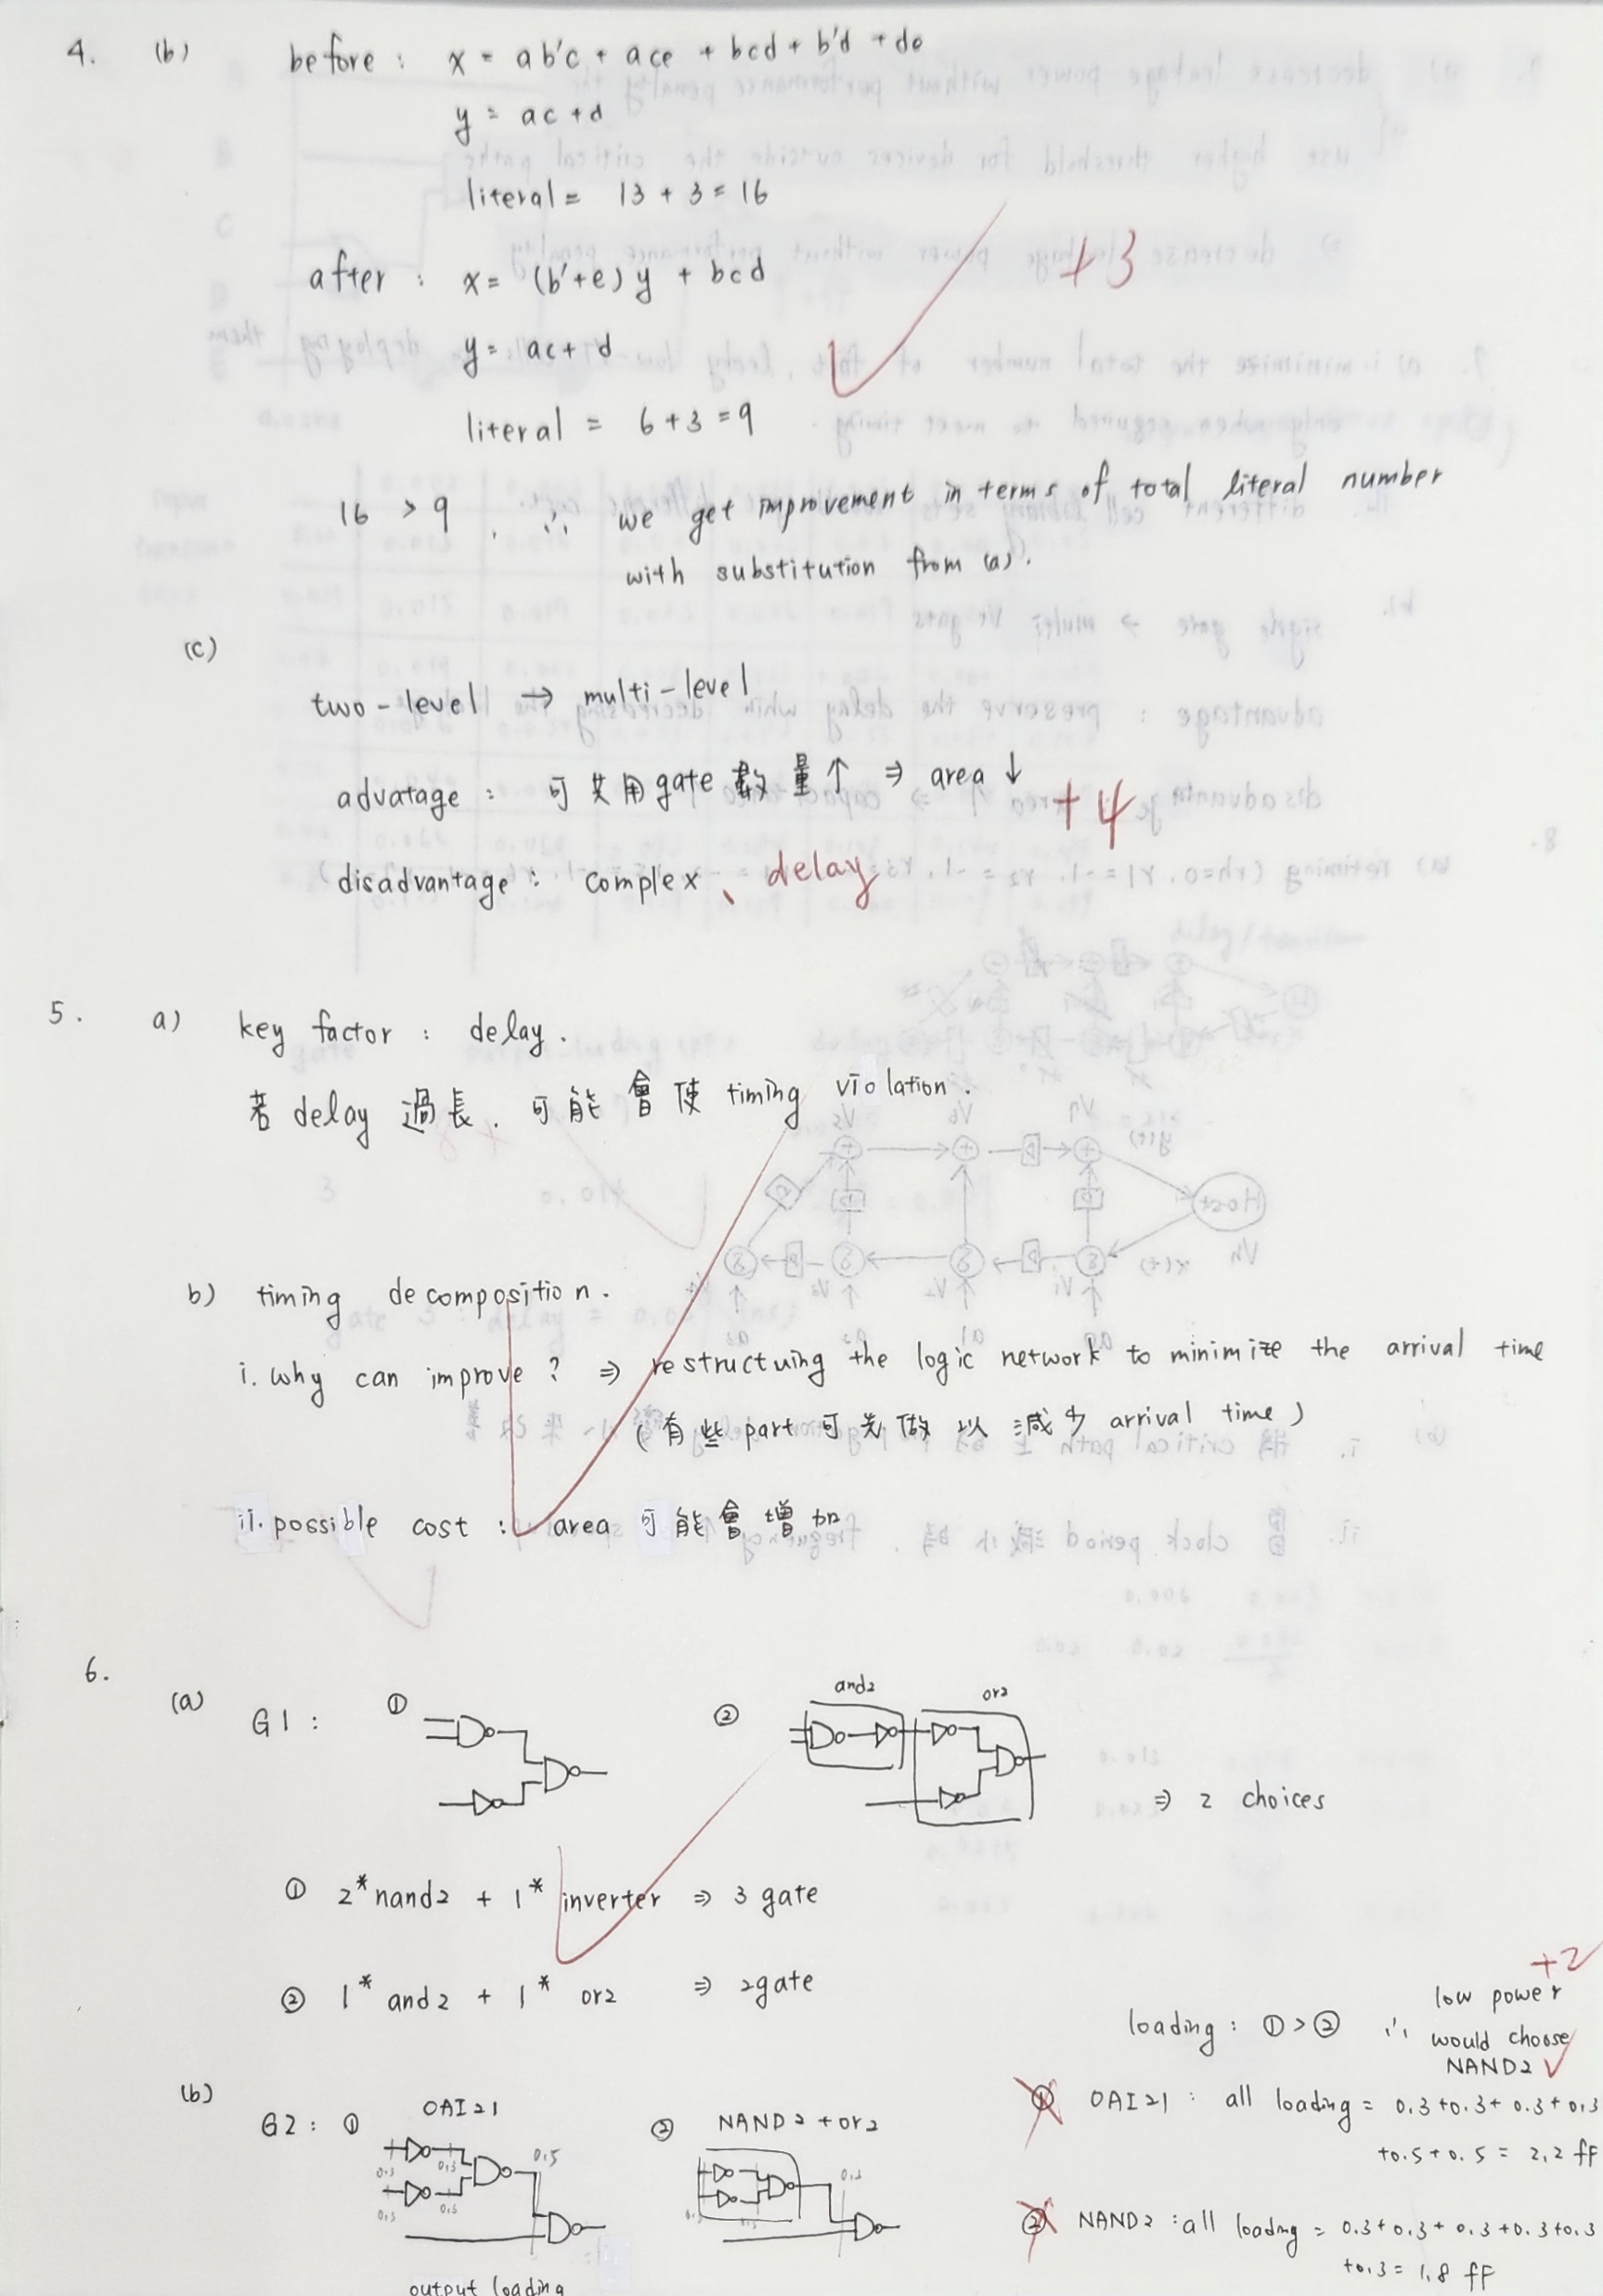 4. (b) before : x = ab'c + ace + bcd + b'd + de
y = ac + d
literal = 13 + 3 = 16
+3
after : x = (b'+e) y + bcd
y = ac + d
literal = 6 + 3 = 9
16 > 9 . ∴ we get improvement in terms of total literal number
with substitution from (a).
(c)
two-level → multi-level
advatage : 可共用 gate 數量↑ ⇒ area ↓
+4
disadvantage : complex、delay
5. a) key factor : delay.
若 delay 過長. 可能會使 timing violation.
b) timing decomposition.
i. why can improve ? ⇒ restructuing the logic network to minimize the arrival time
(有些 part 可先做以減少 arrival time)
ii. possible cost : area 可能會增加
6.
(a) G1 : ① ② and2 or2
⇒ 2 choices
① 2*nand2 + 1* inverter ⇒ 3 gate
② 1* and2 + 1* or2 ⇒ 2gate
+2
loading : ① > ② ∴ low power
would choose
NAND2
(b) G2 : ① OAI21 ② NAND2 + or2
0.3 0.3 0.5
0.3 0.3
① OAI21 : all loading = 0.3 + 0.3 + 0.3 + 0.3
+0.5 + 0.5 = 2.2 fF
② NAND2 : all loading = 0.3 + 0.3 + 0.3 + 0.3 + 0.3
+0.3 = 1.8 fF
output loading